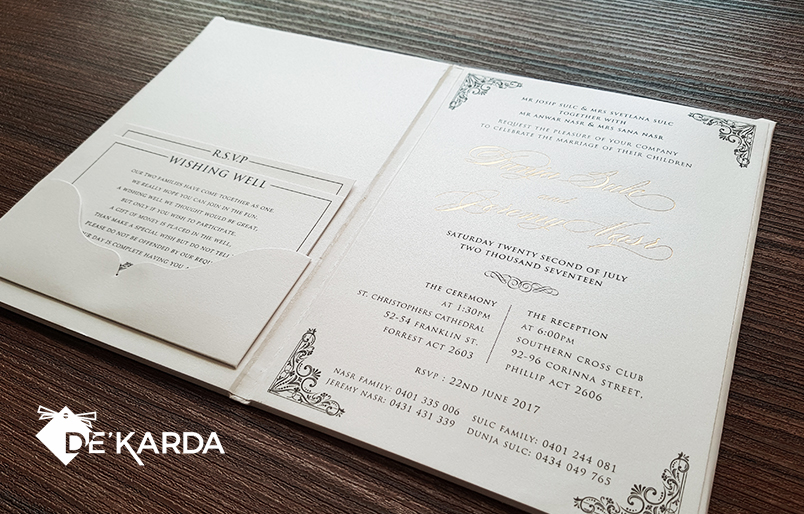 R.S.V.P
WISHING WELL
OUR TWO FAMILIES HAVE COME TOGETHER AS ONE
WE REALLY HOPE YOU CAN JOIN IN THE FUN.
A WISHING WELL WE THOUGHT WOULD BE GREAT,
BUT ONLY IF YOU WISH TO PARTICIPATE.
A GIFT OF MONEY IS PLACED IN THE WELL,
THAN MAKE A SPECIAL WISH BUT DO NOT TELL
PLEASE DO NOT BE OFFENDED BY OUR
DAY IS COMPLETE HAVING YOU
MR JOSIP SULC & MRS SVETLANA SULC
TOGETHER WITH
MR ANWAR NASR & MRS SANA NASR
REQUEST THE PLEASURE OF YOUR COMPANY
TO CELEBRATE THE MARRIAGE OF THEIR CHILDREN
and
SATURDAY TWENTY SECOND OF JULY
TWO THOUSAND SEVENTEEN
THE CEREMONY
AT 1:30PM
ST. CHRISTOPHERS CATHEDRAL
52-54 FRANKLIN ST.
FORREST ACT 2603
THE RECEPTION
AT 6:00PM
SOUTHERN CROSS CLUB
92-96 CORINNA STREET,
PHILLIP ACT 2606
RSVP : 22ND JUNE 2017
NASR FAMILY: 0401 335 006
JEREMY NASR: 0431 431 339
SULC FAMILY: 0401 244 081
DUNJA SULC: 0434 049 765
DE'KARDA